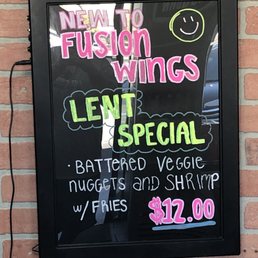 NEW TO
FUSION
WINGS
LENT
SPECIAL
· BATTERED VEGGIE
NUGGETS AND SHRIMP
W/ FRIES $12.00